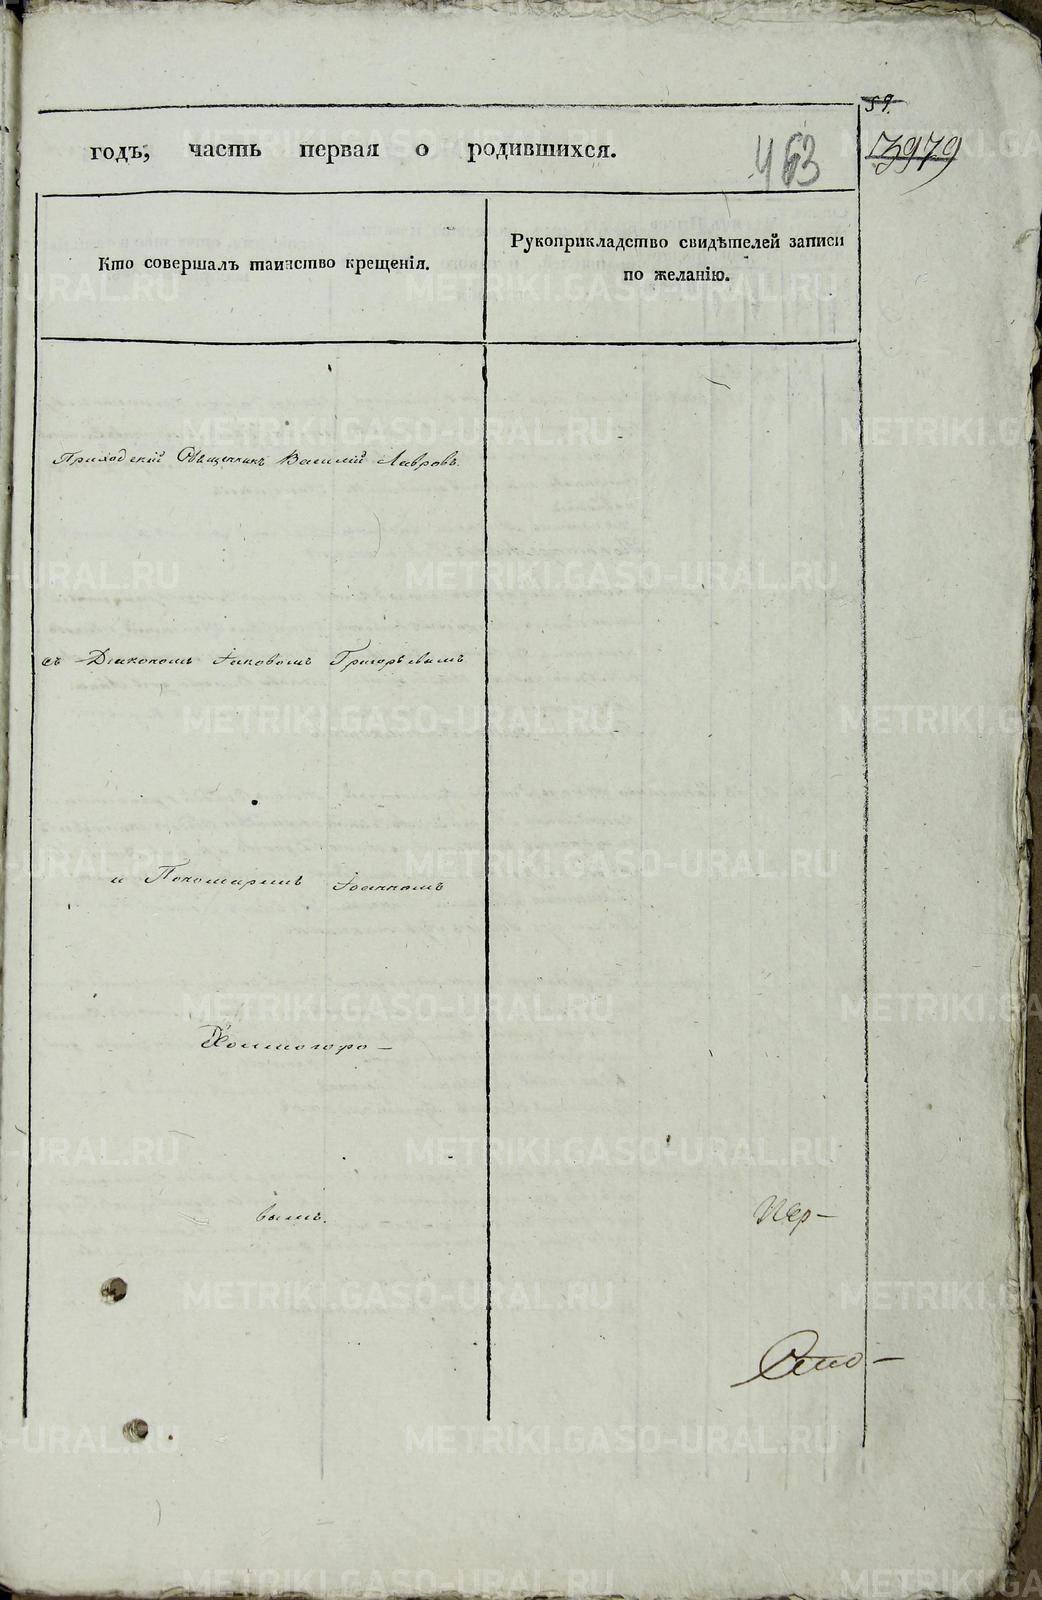 59.
годъ, часть первая о родившихся.
463
13979
Кто совершалъ таинство крещенія.
Рукоприкладство свидѣтелей записи
по желанію.
Приходскій Священникъ Василій Лавровъ.
съ Діакономъ Іаковомъ Григорьевымъ
и Пономаремъ Іоанномъ
Холмогоро-
вымъ.
METRIKI.GASO-URAL.RU